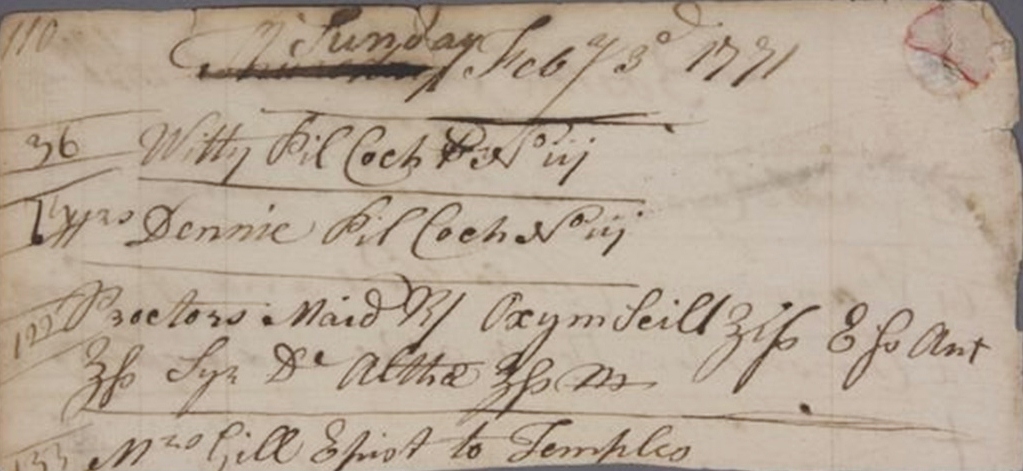 110
Sunday Feb y 3d 1771
36 Witty Pil Coch No iij
1 Mrs Dennie Pil Coch No iij
122 Proctors Maid R/ Oxym Scill ʒiſs E ſs Ant
ʒſs Syr De Althæ ʒſs M
133 Mrs Gill Epist to Temples